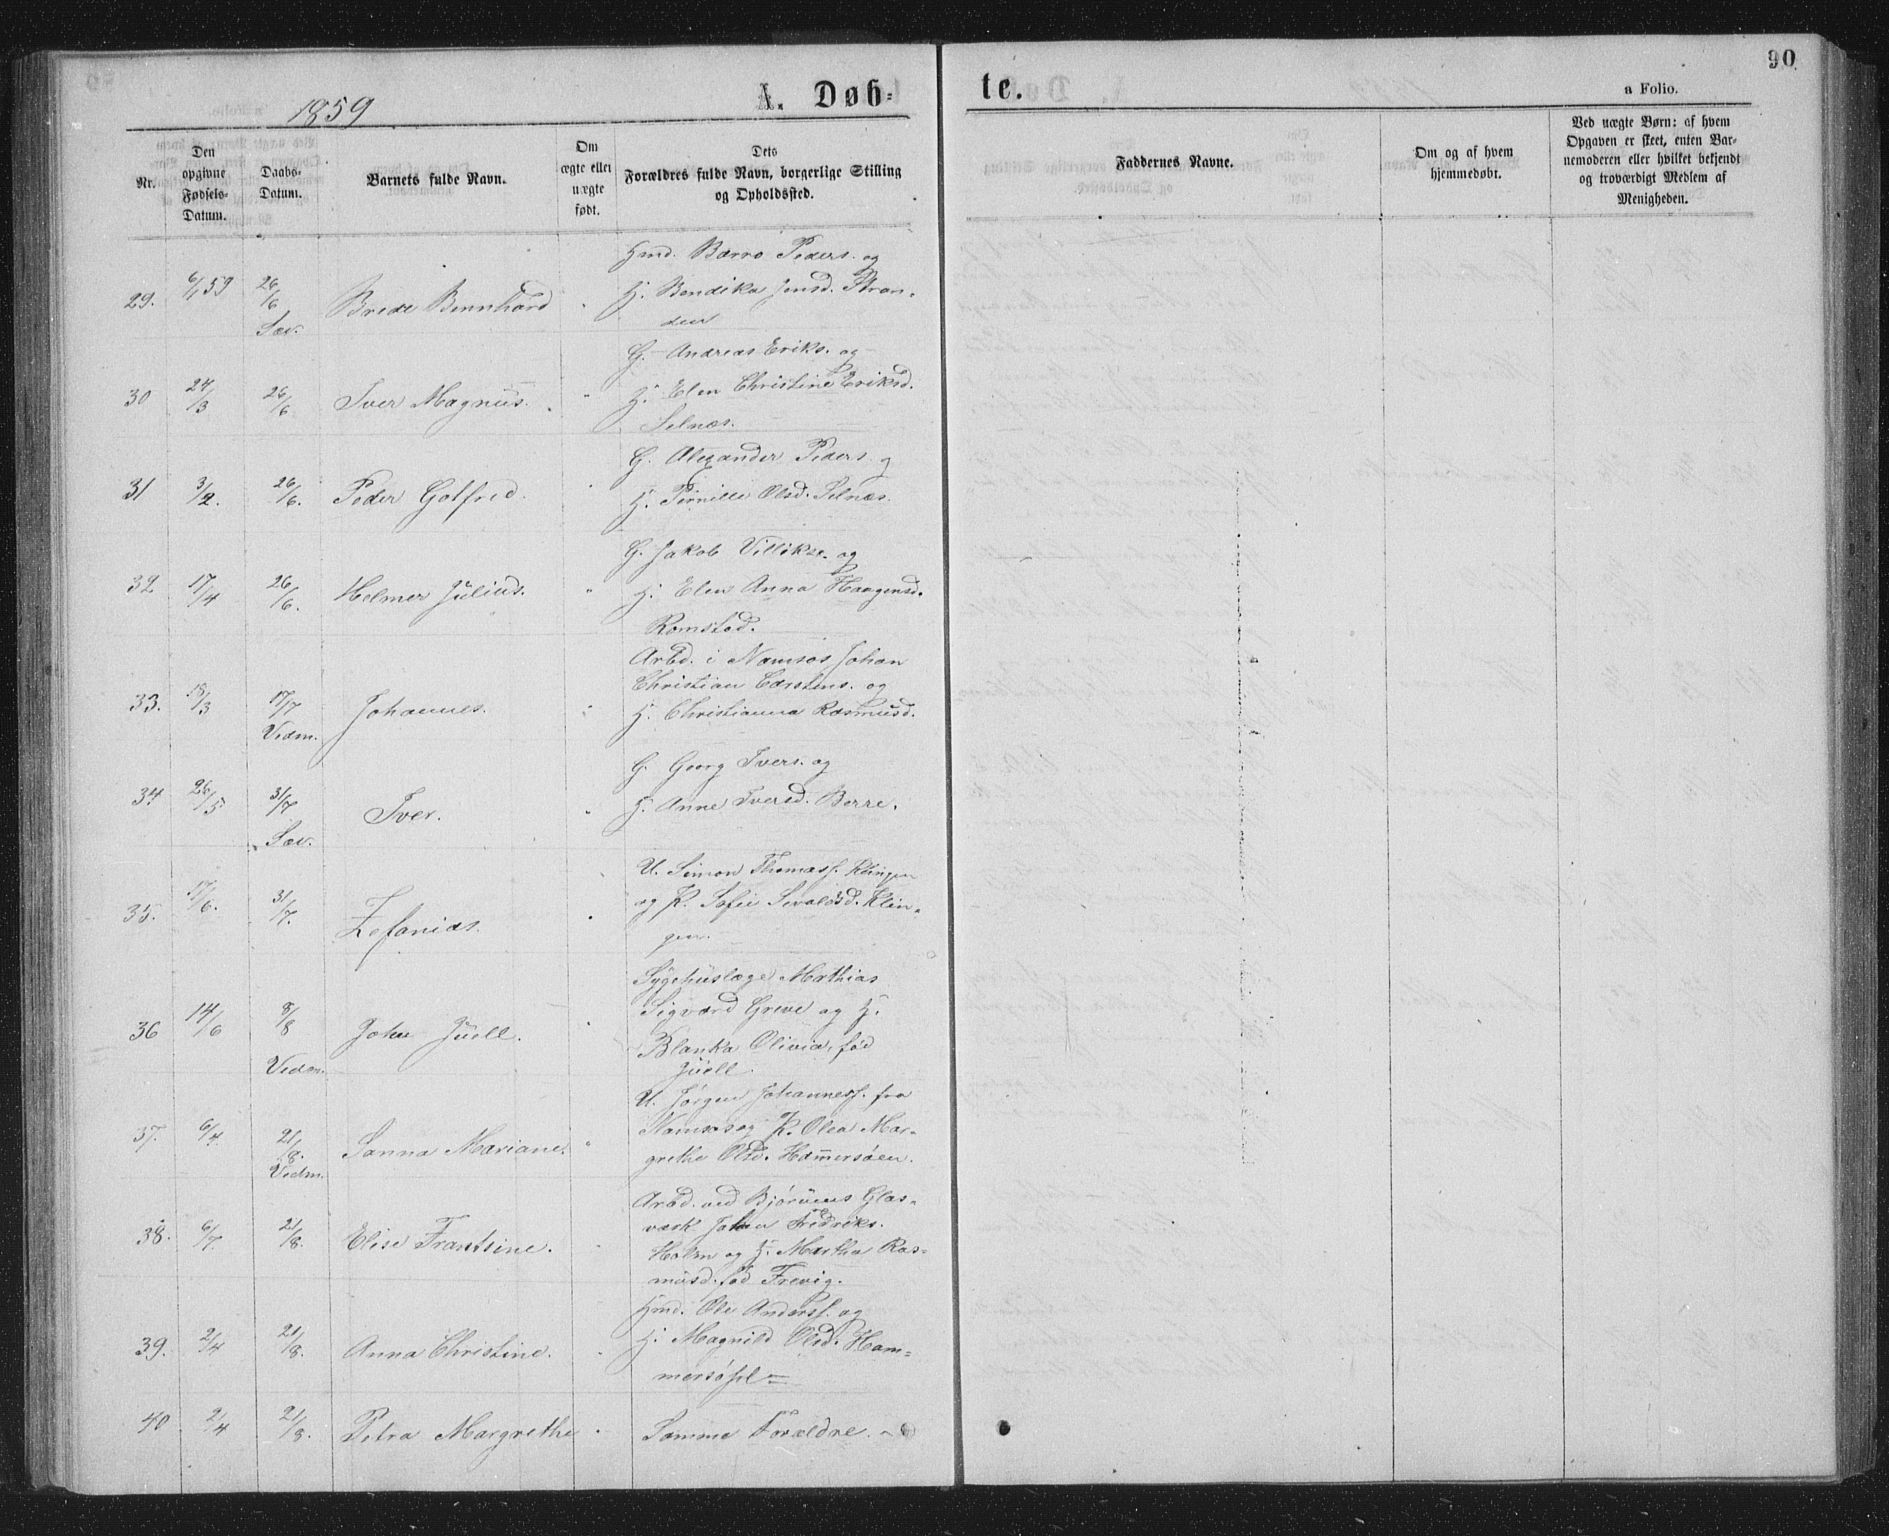 90
1859
A. Døb-
te.
a Folio.
Nr.
Den
opgivne
Fødsels-
Datum.
Daabs-
Datum.
Barnets fulde Navn.
Om
ægte eller
uægte
født.
Dets
Forældres fulde Navn, borgerlige Stilling
og Opholdssted.
Faddernes Navne.
Om og af hvem
hjemmedøbt.
Ved uægte Børn: af hvem
Opgaven er skeet, enten Bar-
nemoderen eller hvilket bekjendt
og troværdigt Medlem af
Menigheden.
Hmd. Barro Peders. og
29. 6/1 59 26/6 Brede Bernhard H. Bendika Jensd. Stran-
Sæv. den
G. Andreas Eriks. og
30 24/3 26/6 Iver Magnus. H. Elen Christine Eriksd.
Selnæs.
G. Alexander Peders. og
31 3/2. 26/6. Peder Gotfred. H. Pernille Olsd. Selnæs.
G. Jakob Villiks. og
32 17/4 26/6. Helmer Julius. H. Elen Anna Haagensd.
Romstad.
Arbd. i Namsos Johan
Christian Carstens. og
33. 18/3 17/7 Johannes. H. Christianna Rasmusd.
Vedm.
G. Georg Ivers. og
34. 26/5 31/7 Iver. H. Anne Iversd. Borre.
Sæv.
U. Simon Thomass. Klingen
35. 17/6. 31/7. Zefanias. og P. Sofie Sivaldsd. Klin-
gen.
Sygehuslæge Mathias
Sigvard Greve og H.
36 14/6 8/8 John Juell. Blanka Olivia, fød
Vedm. Juell.
U. Jørgen Johanness. fra
37. 6/4. 21/8. Sanna Mariane. Namsos og P. Olea Mar-
Vedm. grethe Olsd. Hamersøen.
Arbd. ved Bjørums Glas-
38. 6/7. 21/8. Elise Frantsine. værk Johan Fredriks.
Holm og H. Martha Ras-
musd. fød Frevig.
Hmd. Ole Anderss. og
39. 2/4 21/8. Anna Christine. H. Magnild Olsd. Ham-
mersøfel
40 2/4 21/8. Petra Margrethe Samme Forældre.